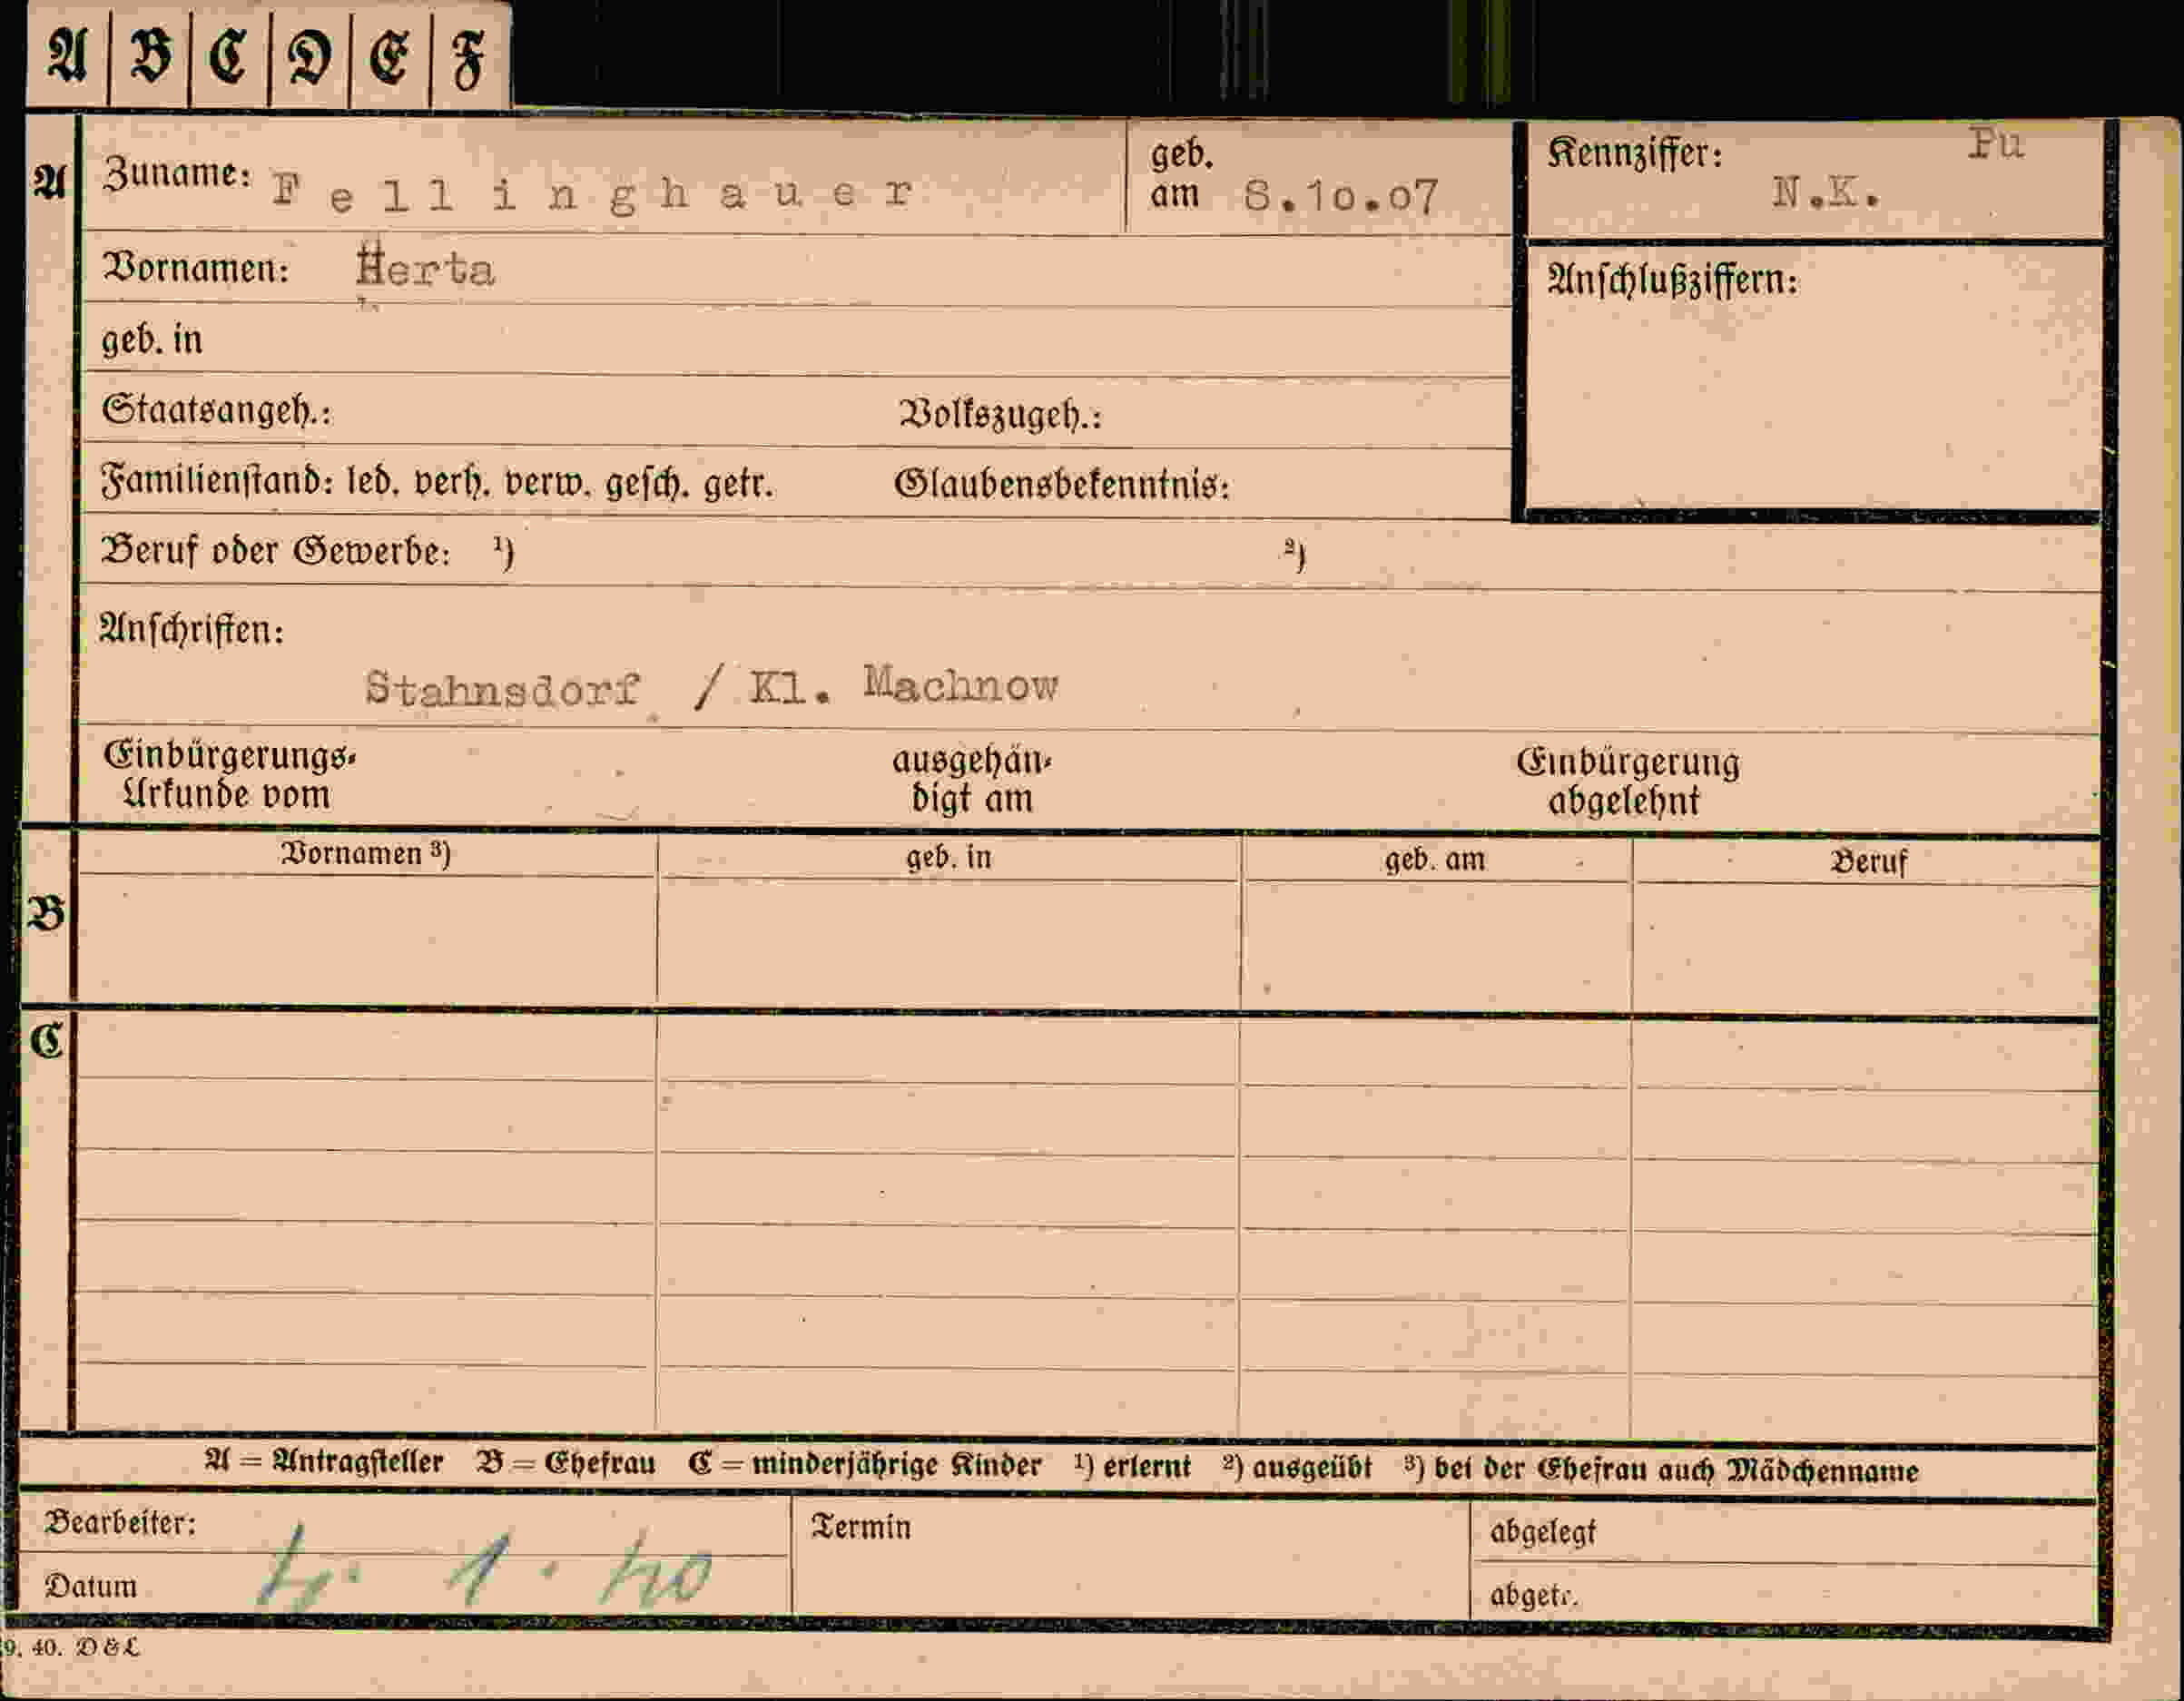 A B C D E F
A Zuname: Fellinghauer geb. am 8.10.07 Kennziffer: Fu N.K.
Vornamen: Herta Anschlußziffern:
geb. in
Staatsangeh.: Volkszugeh.:
Familienstand: led. verh. verw. gesch. getr. Glaubensbekenntnis:
Beruf oder Gewerbe: ¹) ²)
Anschriften:
Stahnsdorf / Kl. Machnow
Einbürgerungs- ausgehän- Einbürgerung
Urkunde vom digt am abgelehnt
Vornamen ³) geb. in geb. am Beruf
B
C
A = Antragsteller B = Ehefrau C = minderjährige Kinder ¹) erlernt ²) ausgeübt ³) bei der Ehefrau auch Mädchenname
Bearbeiter: Termin abgelegt
Datum 1. 40 abgetr.
9. 40. D & L